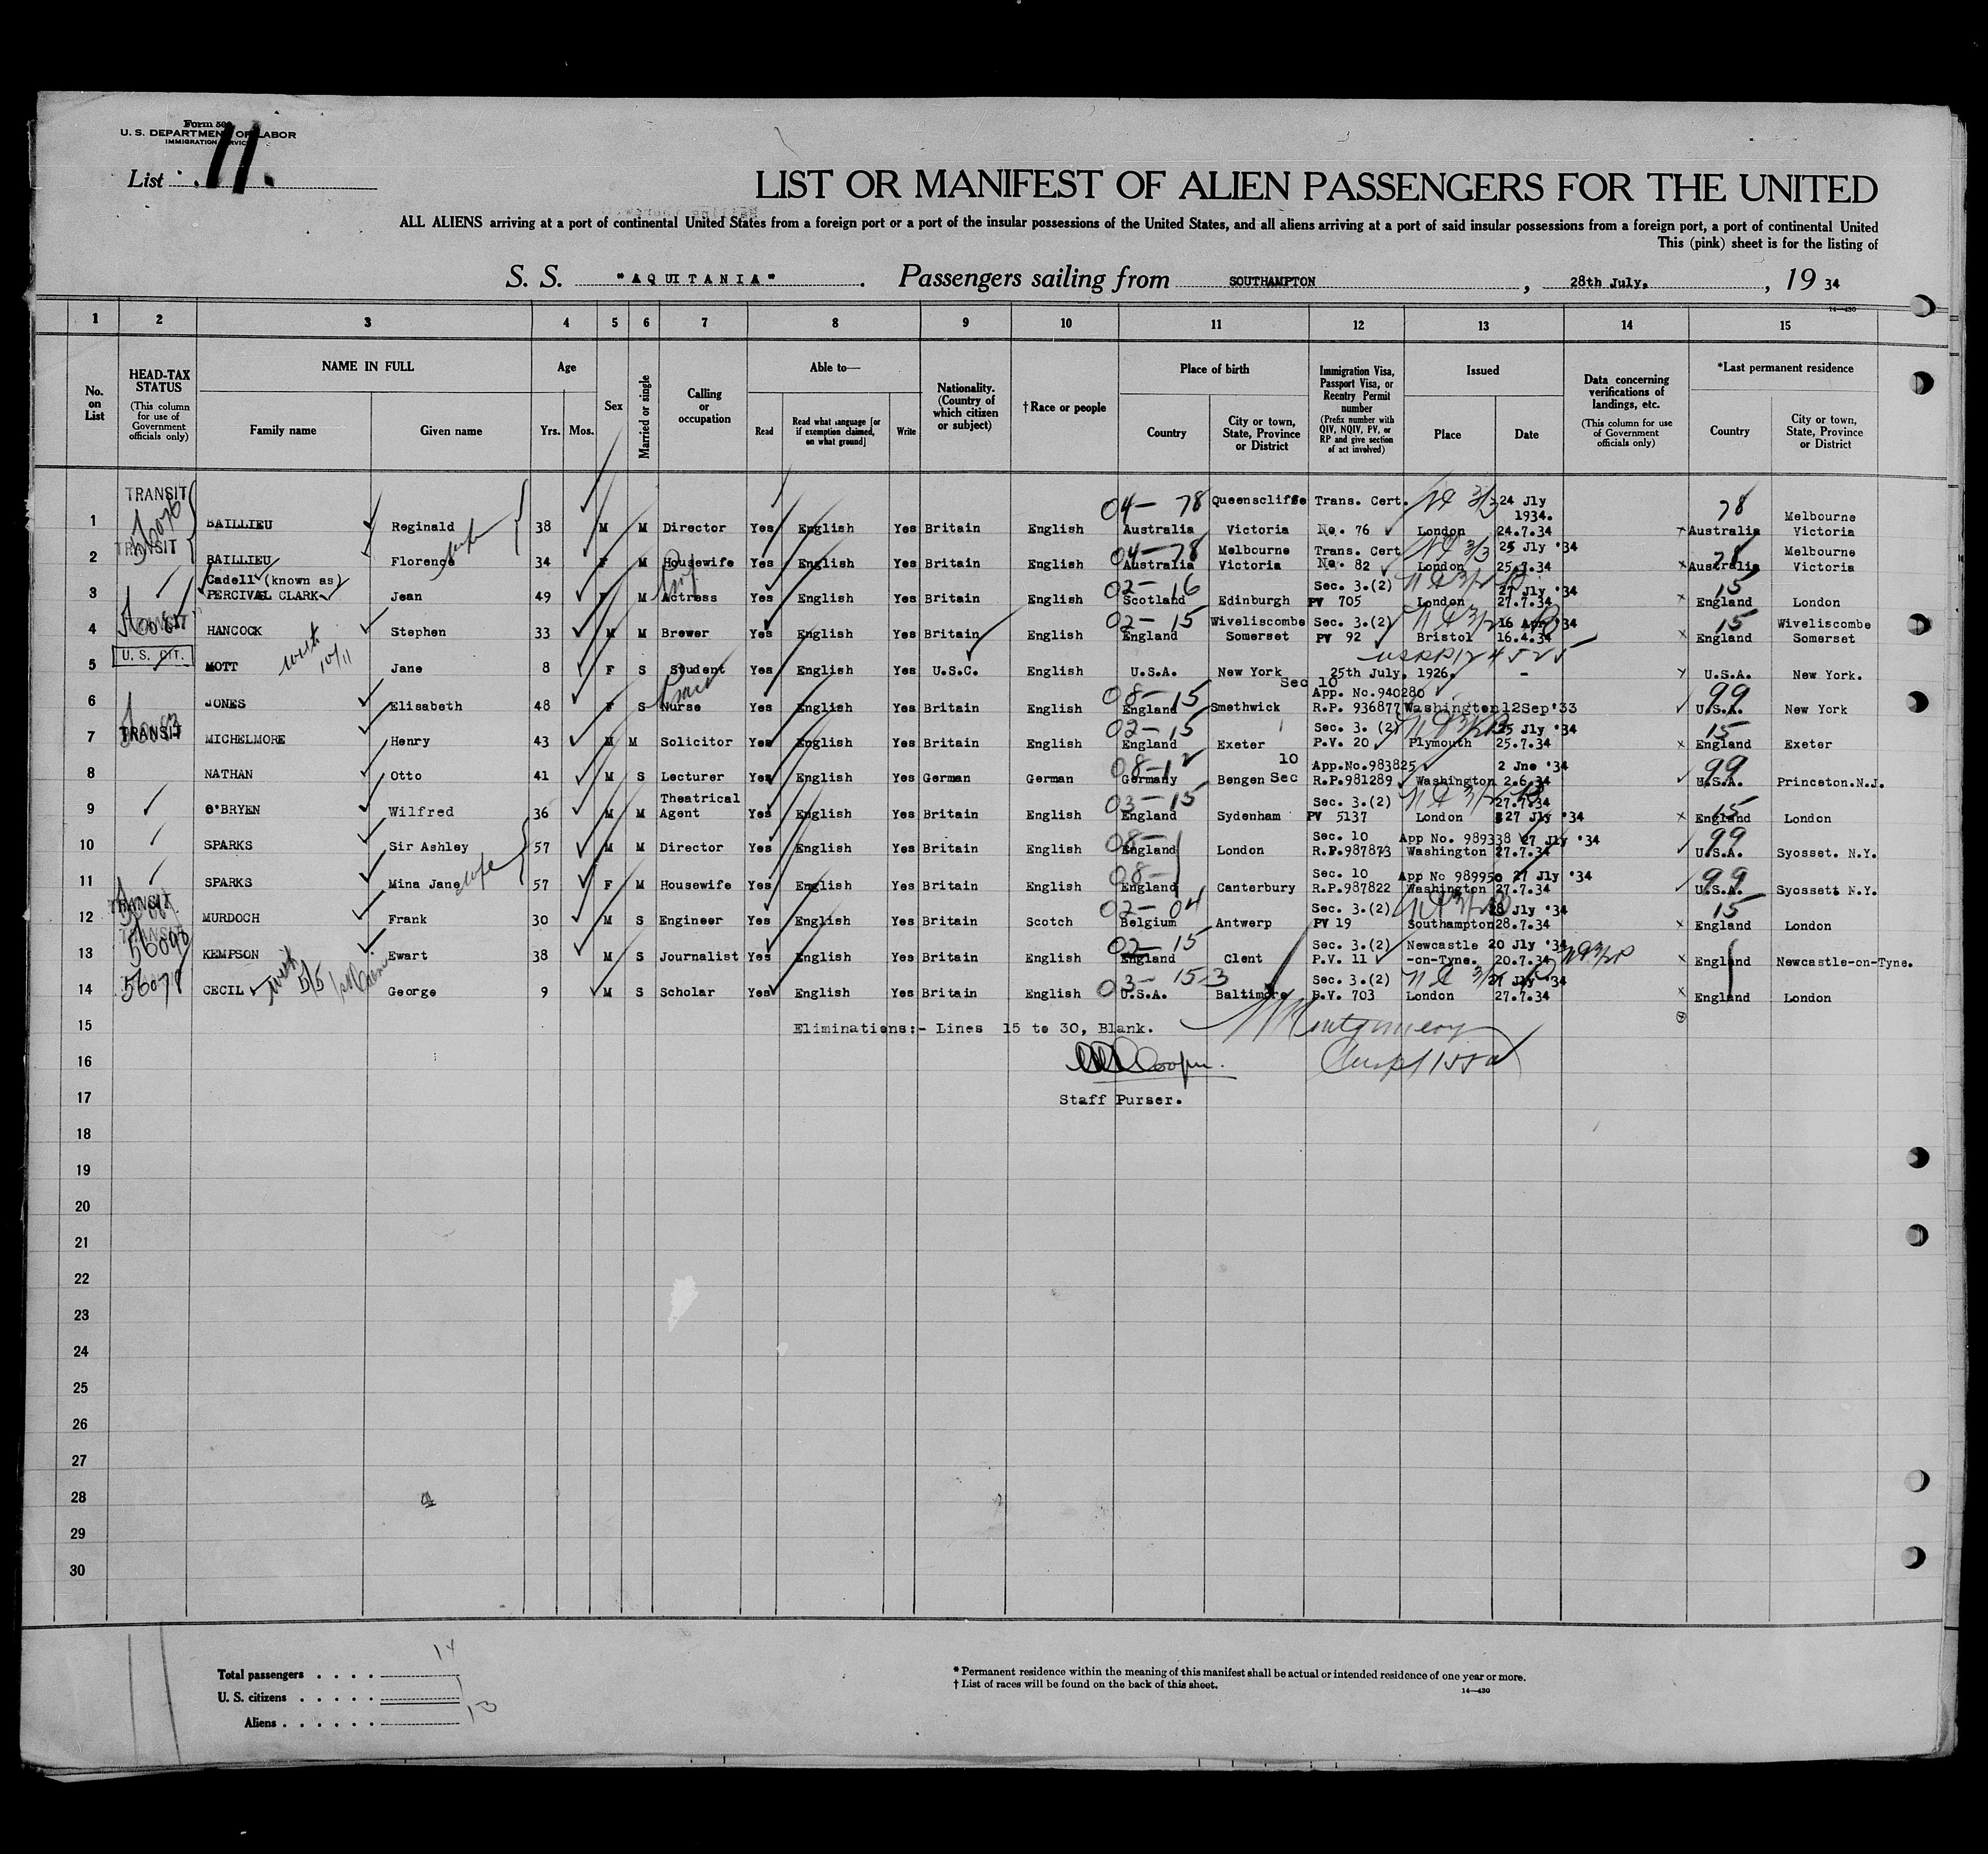 Form 500
U. S. DEPARTMENT OF LABOR
IMMIGRATION SERVICE
List 11.
LIST OR MANIFEST OF ALIEN PASSENGERS FOR THE UNITED
ALL ALIENS arriving at a port of continental United States from a foreign port or a port of the insular possessions of the United States, and all aliens arriving at a port of said insular possessions from a foreign port, a port of continental United
This (pink) sheet is for the listing of
S. S. "AQUITANIA" . Passengers sailing from SOUTHAMPTON , 28th July. , 19 34
1 2 3 4 5 6 7 8 9 10 11 12 13 14 15
No. on List
HEAD-TAX STATUS (This column for use of Government officials only)
NAME IN FULL Family name Given name
Age Yrs. Mos.
Sex
Married or single
Calling or occupation
Able to— Read Read what language [or if exemption claimed, on what ground] Write
Nationality. (Country of which citizen or subject)
†Race or people
Place of birth Country City or town, State, Province or District
Immigration Visa, Passport Visa, or Reentry Permit number (Prefix number with QIV, NQIV, PV, or RP and give section of act involved)
Issued Place Date
Data concerning verifications of landings, etc. (This column for use of Government officials only)
*Last permanent residence Country City or town, State, Province or District
1 TRANSIT 56076 BAILLIEU Reginald 38 M M Director Yes English Yes Britain English 04-78 Australia Queenscliffe Victoria Trans. Cert. No. 76 London 24 Jly 1934. 24.7.34 78 Australia Melbourne Victoria
2 TRANSIT BAILLIEU Florence wife 34 F M Housewife Yes English Yes Britain English 04-78 Australia Melbourne Victoria Trans. Cert No. 82 London 25 Jly '34 25.7.34 78 Australia Melbourne Victoria
3 Cadell (known as) PERCIVAL CLARK Jean 49 F M Actress Yes English Yes Britain English 02-16 Scotland Edinburgh Sec. 3.(2) PV 705 London 27 Jly '34 27.7.34 15 England London
4 HANCOCK Stephen 33 M M Brewer Yes English Yes Britain English 02-15 England Wiveliscombe Somerset Sec. 3.(2) PV 92 Bristol 16 Apr '34 16.4.34 15 England Wiveliscombe Somerset
5 U. S. CIT. MOTT with 10/11 Jane 8 F S Student Yes English Yes U.S.C. English U.S.A. New York 25th July, 1926. - U.S.A. New York.
6 JONES Elisabeth 48 F S Nurse Yes English Yes Britain English 08-15 England Smethwick Sec 10 App. No.940280 R.P. 936877 Washington 12Sep'33 99 U.S.A. New York
7 TRANSIT MICHELMORE Henry 43 M M Solicitor Yes English Yes Britain English 02-15 England Exeter Sec. 3. (2) P.V. 20 Plymouth 25 Jly '34 25.7.34 15 England Exeter
8 NATHAN Otto 41 M S Lecturer Yes English Yes German German 08-12 Germany Bengen Sec 10 App.No.983825 R.P.981289 Washington 2 Jne '34 2.6.34 99 U.S.A. Princeton.N.J.
9 O'BRYEN Wilfred 36 M M Theatrical Agent Yes English Yes Britain English 03-15 England Sydenham Sec. 3.(2) PV 5137 London 27.7.34 27 Jly '34 15 England London
10 SPARKS Sir Ashley 57 M M Director Yes English Yes Britain English 08- England London Sec. 10 App No. 989338 R.P.987873 Washington 27 Jly '34 27.7.34 99 U.S.A. Syosset. N.Y.
11 SPARKS Mina Jane wife 57 F M Housewife Yes English Yes Britain English 08- England Canterbury Sec. 10 App No 989950 R.P.987822 Washington 27 Jly '34 27.7.34 99 U.S.A. Syossett N.Y.
12 TRANSIT MURDOCH Frank 30 M S Engineer Yes English Yes Britain Scotch 02-04 Belgium Antwerp Sec. 3.(2) PV 19 Southampton 28 Jly '34 28.7.34 15 England London
13 TRANSIT 56090 KEMPSON Ewart 38 M S Journalist Yes English Yes Britain English 02-15 England Clent Sec. 3.(2) P.V. 11 Newcastle -on-Tyne. 20 Jly '34 20.7.34 England Newcastle-on-Tyne.
14 56078 CECIL with 5/5 George 9 M S Scholar Yes English Yes Britain English 03-15-3 U.S.A. Baltimore Sec. 3.(2) P.V. 703 London 27 Jly '34 27.7.34 England London
15 Eliminations:- Lines 15 to 30, Blank. Montgomery
16 Cooper.
17 Staff Purser.
18
19
20
21
22
23
24
25
26
27
28
29
30
Total passengers . . . . 14
U. S. citizens . . . . . 1
Aliens . . . . . . 13
* Permanent residence within the meaning of this manifest shall be actual or intended residence of one year or more.
† List of races will be found on the back of this sheet.
14—430